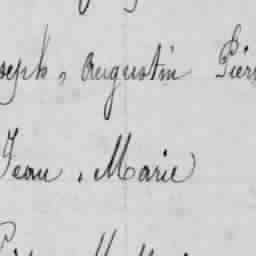 seph, Augustin Pier
Jean, Marie